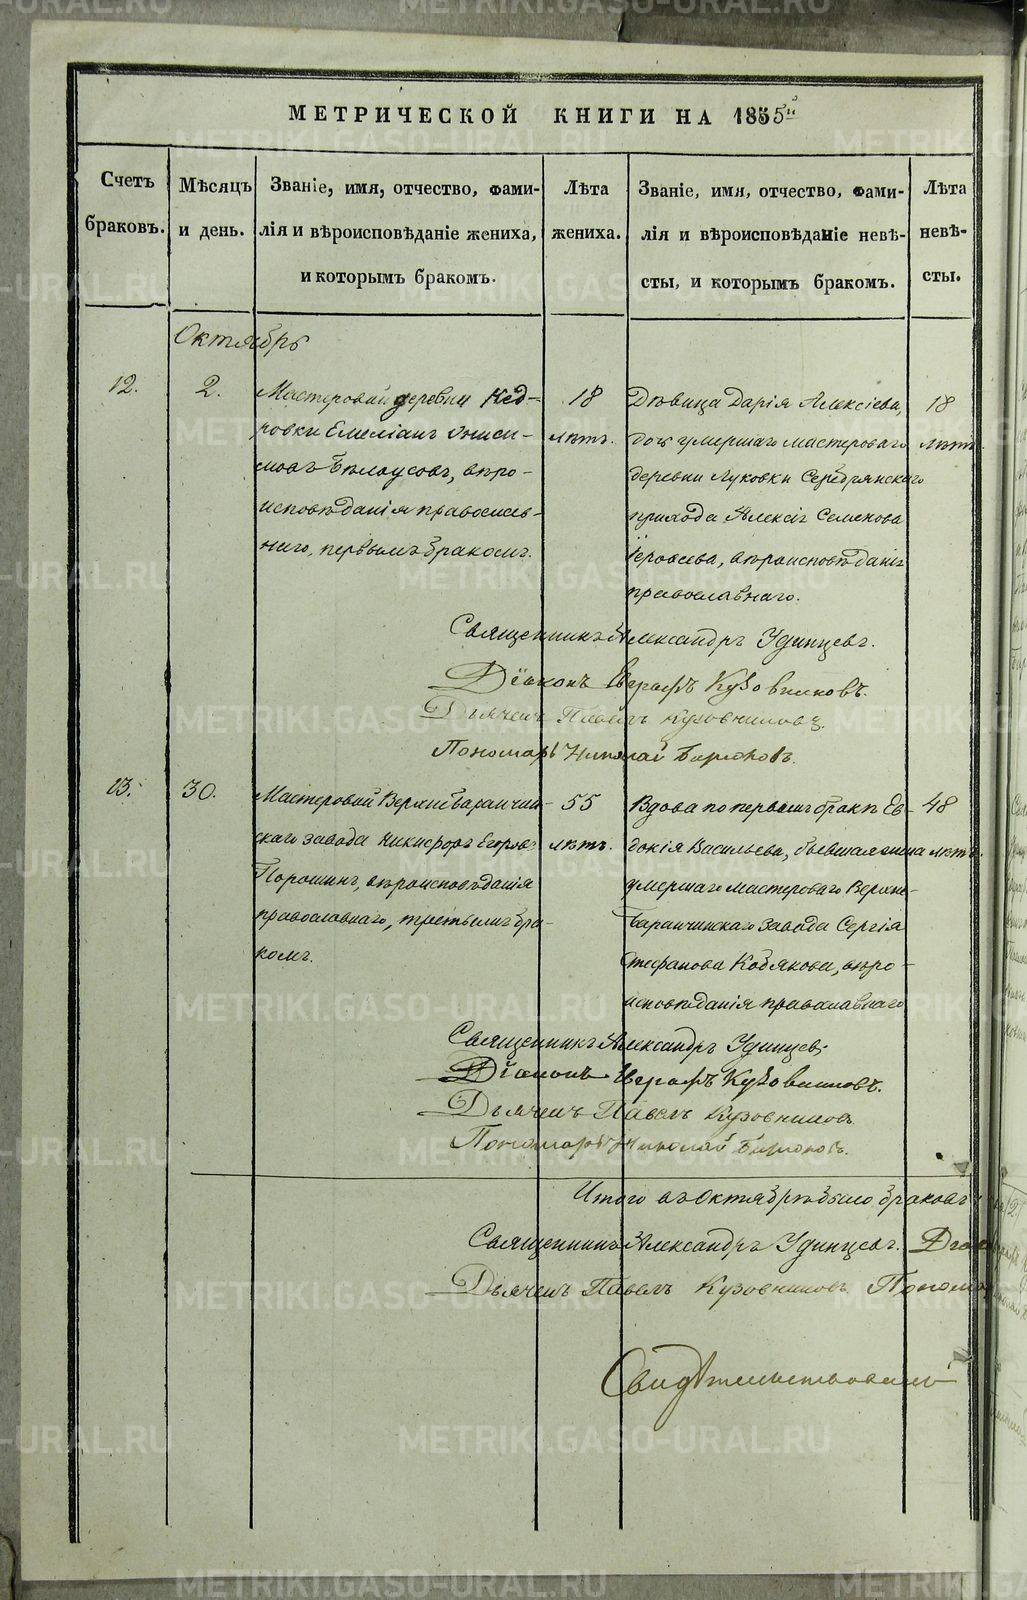 МЕТРИЧЕСКОЙ КНИГИ НА 1855й
Счетъ браковъ.
Мѣсяцъ и день.
Званіе, имя, отчество, фами-
лія и вѣроисповѣданіе жениха,
и которымъ бракомъ.
Лѣта
жениха.
Званіе, имя, отчество, фами-
лія и вѣроисповѣданіе невѣ-
сты, и которымъ бракомъ.
Лѣта
невѣ-
сты.
Октябрь
12.
2.
Мастеровой деревни Кед-
ровки Емеліанъ Ониси-
мовъ Бѣлоусовъ, вѣро-
исповѣданія православ-
наго, первымъ бракомъ.
18
лѣтъ.
Дѣвица Дарія Алексіева,
дочь умершаго мастероваго
деревни Луковки Серебрянскаго
прихода Алексія Семенова
вѣроисповѣданія
православнаго.
18
лѣтъ.
Священникъ Александръ Удинцевъ.
Діаконъ Евграфъ Кузовниковъ.
Дьячекъ Павелъ Кузовниковъ.
Пономарь Николай Бирюковъ.
13.
30.
Мастеровой Верхнебаранчин-
скаго завода Никифоръ Егоровъ
Порошинъ, вѣроисповѣданія
православнаго, третьимъ бра-
комъ.
55
лѣтъ.
Вдова по первомъ бракѣ Ев-
докія Васильева, бывшая жена
умершаго мастероваго Верхне-
баранчинскаго завода Сергія
Стефанова Кобякова, вѣро-
исповѣданія православнаго
48
лѣтъ.
Священникъ Александръ Удинцевъ
Діаконъ Евграфъ Кузовниковъ.
Дьячекъ Павелъ Кузовниковъ
Пономарь Николай Бирюковъ.
Итого въ Октябрѣ было браковъ
Священникъ Александръ Удинцевъ. Діа
Дьячекъ Павелъ Кузовниковъ Пономар
METRIKI.GASO-URAL.RU